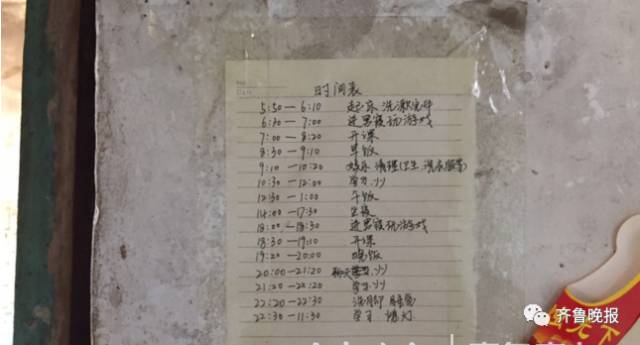 时间表
5:50—6:10 起床 洗漱完毕
6:30—7:00 进男寝玩游戏
7:00—8:20 开课
8:30—9:10 早饭
9:10—10:20 娱乐 清理卫生 洗衣服等
10:30—12:00 学习
12:30—1:00 午饭
14:00—17:30
18:00—18:30 进男寝玩游戏
18:30—19:10 开课
19:20—20:00 晚饭
20:00—21:20 聊天
21:20—22:20 学习
22:20—22:30 洗脚 睡觉
22:30—11:30 学习 熄灯
齐鲁晚报